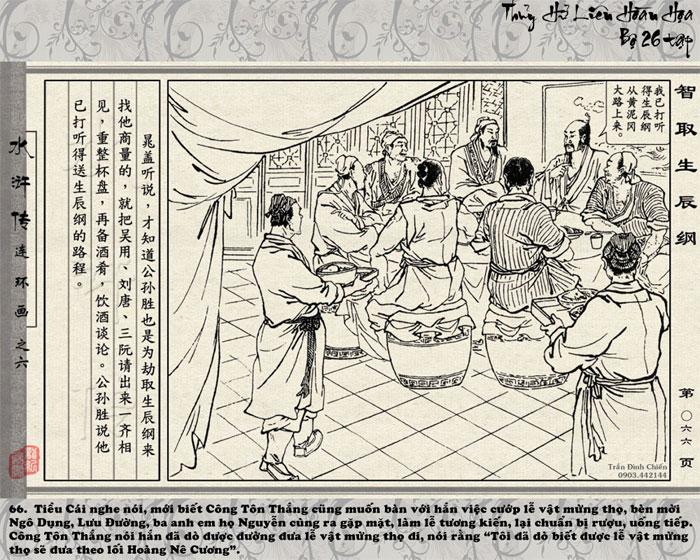 Thủy Hử Liên Hoàn Họa
Bộ 26 tập
智取生辰纲
我已打听
得生辰纲
从黄泥冈
大路上来。
晁盖听说，才知道公孙胜也是为劫取生辰纲来
找他商量的，就把吴用、刘唐、三阮请出来一齐相
见，重整杯盘，再备酒肴，饮酒谈论。公孙胜说他
已打听得送生辰纲的路程。
水浒传连环画之六
第〇六六页
Trần Đình Chiến
0903.442144
66. Tiểu Cái nghe nói, mới biết Công Tôn Thắng cũng muốn bàn với hắn việc cướp lễ vật mừng thọ, bèn mời
Ngô Dụng, Lưu Đường, ba anh em họ Nguyễn cùng ra gặp mặt, làm lễ tương kiến, lại chuẩn bị rượu, uống tiếp.
Công Tôn Thắng nói hắn đã dò được đường đưa lễ vật mừng thọ đi, nói rằng “Tôi đã dò biết được lễ vật mừng
thọ sẽ đưa theo lối Hoàng Nê Cương”.